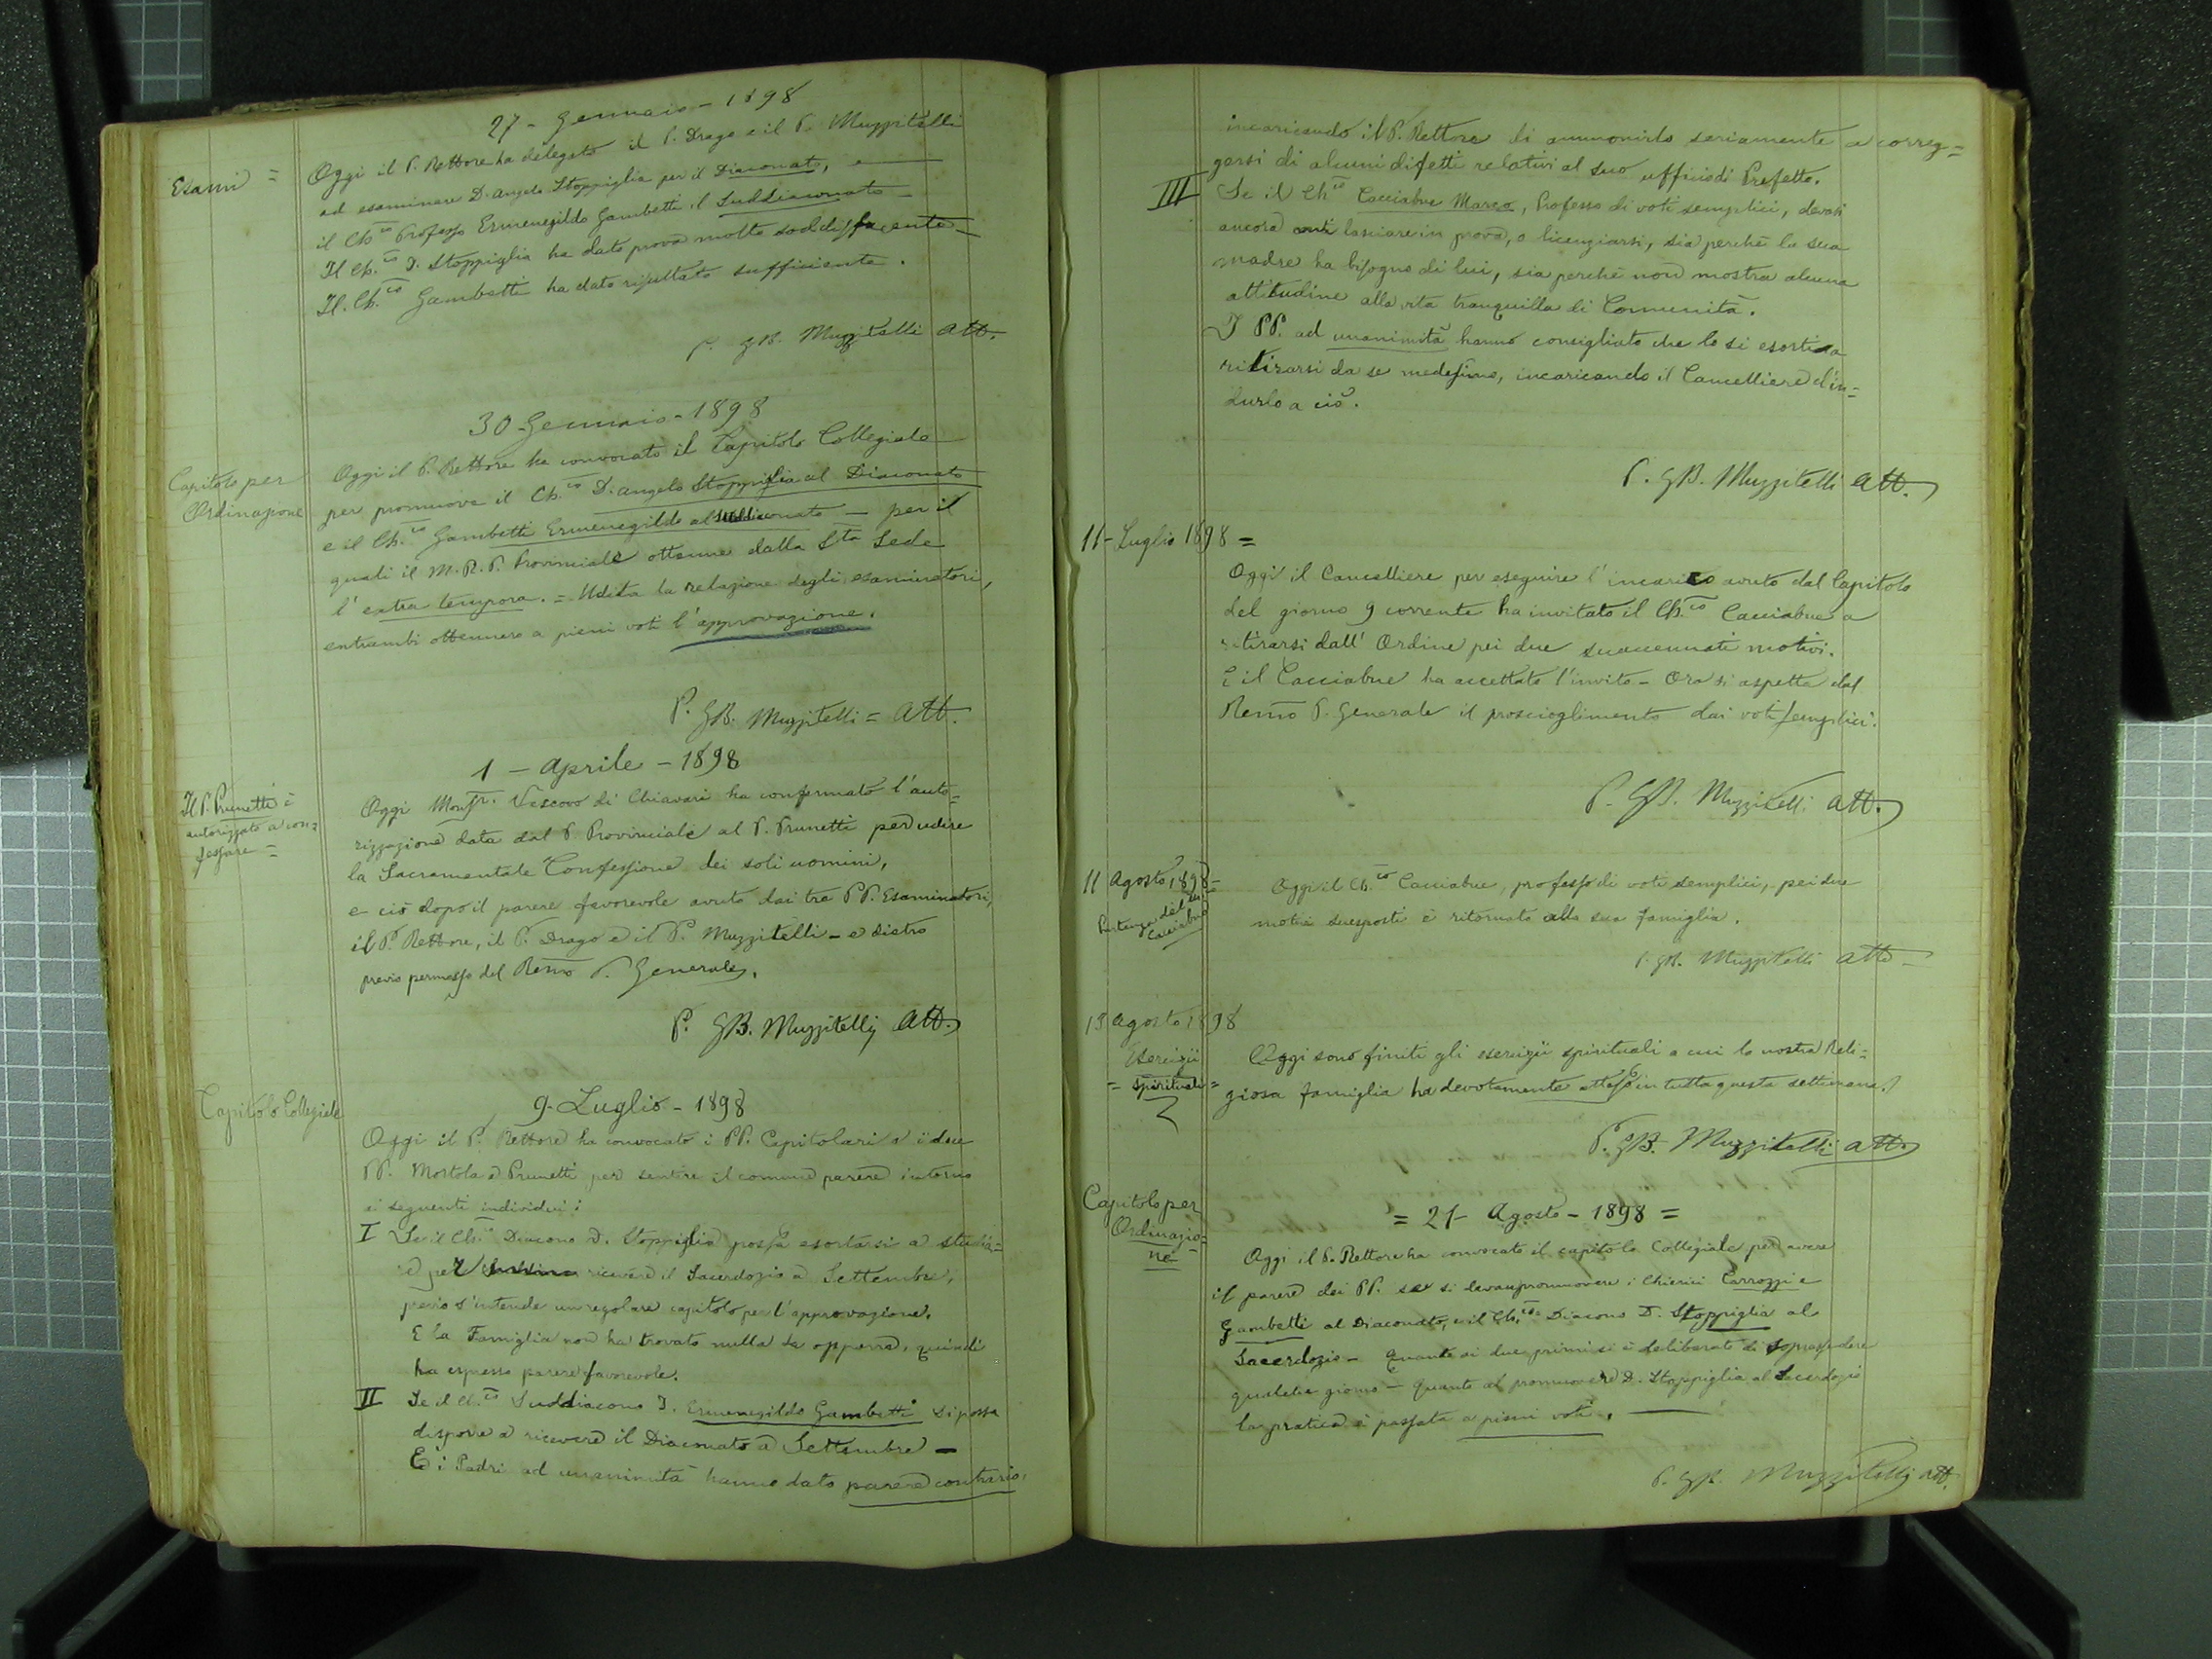 27 - Gennaio - 1898
Esami =
Oggi il P. Rettore ha delegato il P. Drago e il P. Muzzitelli
ad esaminare D. Angelo Stoppiglia per il Diaconato, e
il Ch.co Professo Ermenegildo Gambetti il Suddiaconato
Il Ch.co D. Stoppiglia ha dato prova molto soddisfacente =
Il Ch.co Gambetti ha dato risultato sufficiente.
P. GB. Muzzitelli Att.
30 - Gennaio - 1898
Capitolo per
Ordinazione
Oggi il P. Rettore ha convocato il Capitolo Collegiale
per promuove il Ch.co D. Angelo Stoppiglia al Diaconato
e il Ch.co Gambetti Ermenegildo al Suddiaconato - per il
quali il M. R. P. Provinciale ottenne dalla Sta Sede
l'extra tempora. = Udita la relazione degli esaminatori,
entrambi ottennero a pieni voti l'approvazione.
P. GB. Muzzitelli = Att.
1 - Aprile - 1898
Il P. Prunetti è
autorizzato a con=
fessare =
Oggi Monsr. Vescovo di Chiavari ha confermato l'auto=
rizzazione data dal P. Provinciale al P. Prunetti per udire
la Sacramentale Confessione dei soli uomini,
e ciò dopo il parere favorevole avuto dai tre PP. Esaminatori,
il P. Rettore, il P. Drago e il P. Muzzitelli - e dietro
previo permesso del Remo P. Generale.
P. GB. Muzzitelli Att.
Capitolo Collegiale
9 - Luglio - 1898
Oggi il P. Rettore ha convocato i PP. Capitolari e i due
PP. Mostola e Prunetti per sentire il comune parere intorno
ai seguenti individui:
I Se il Ch.co Diacono D. Stoppiglia possa esortarsi a studia=
re per ricevere il Sacerdozio a Settembre,
previo s'intende un regolare capitolo per l'approvazione.
E la Famiglia non ha trovato nulla da opporre, quindi
ha espresso parere favorevole.
II Se il Ch.co Suddiacono D. Ermenegildo Gambetti si possa
disporre a ricevere il Diaconato a Settembre -
E i Padri ad unanimità hanno dato parere contrario,
incaricando il P. Rettore di ammonirlo seriamente a correg=
gersi di alcuni difetti relativi al suo ufficio di Prefetto.
III Se il Ch.co Cacciabue Marco, Professo di voti semplici, devasi
ancora lasciare in prova, o licenziarsi, sia perchè la sua
madre ha bisogno di lui, sia perchè non mostra alcuna
attitudine alla vita tranquilla di Comunità.
I PP. ad unanimità hanno consigliato che lo si esorti a
ritirarsi da se medesimo, incaricando il Cancelliere d'in=
durlo a ciò.
P. GB. Muzzitelli Att.
11 - Luglio 1898 =
Oggi il Cancelliere per eseguire l'incarico avuto dal Capitolo
del giorno 9 corrente ha invitato il Ch.co Cacciabue a
ritirarsi dall'Ordine pei due suaccennati motivi.
E il Cacciabue ha accettato l'invito - Ora si aspetta dal
Remo P. Generale il proscioglimento dai voti semplici.
P. GB. Muzzitelli Att.
11 Agosto 1898 =
Partenza del Ch.
Cacciabue
Oggi il Ch.co Cacciabue, professo di voti semplici, pei due
motivi suesposti è ritornato alla sua famiglia.
P. GB. Muzzitelli Att -
Agosto 1898
Esercizii
= spirituali =
Oggi sono finiti gli esercizii spirituali a cui la nostra Reli=
giosa famiglia ha devotamente atteso in tutta questa settimana.
P. GB. Muzzitelli Att.
Capitolo per
Ordinazio=
ne
= 21 - Agosto - 1898 =
Oggi il P. Rettore ha convocato il capitolo Collegiale per avere
il parere dei PP. se si devan promuovere i Chierici Carrozzi e
Gambetti al Diaconato, e il Ch.co Diacono D. Stoppiglia al
Sacerdozio - Quanto ai due primi si è deliberato di soprassedere
qualche giorno - Quanto al promuovere D. Stoppiglia al Sacerdozio
la pratica è passata a pieni voti.
P. GB. Muzzitelli Att.